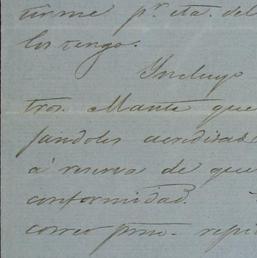 tirme pr. cta. del
los tengo.
Incluyo
tros. Mante que
jandoles acreditas
a' reserva de que
conformidad.
correo pmo. repi